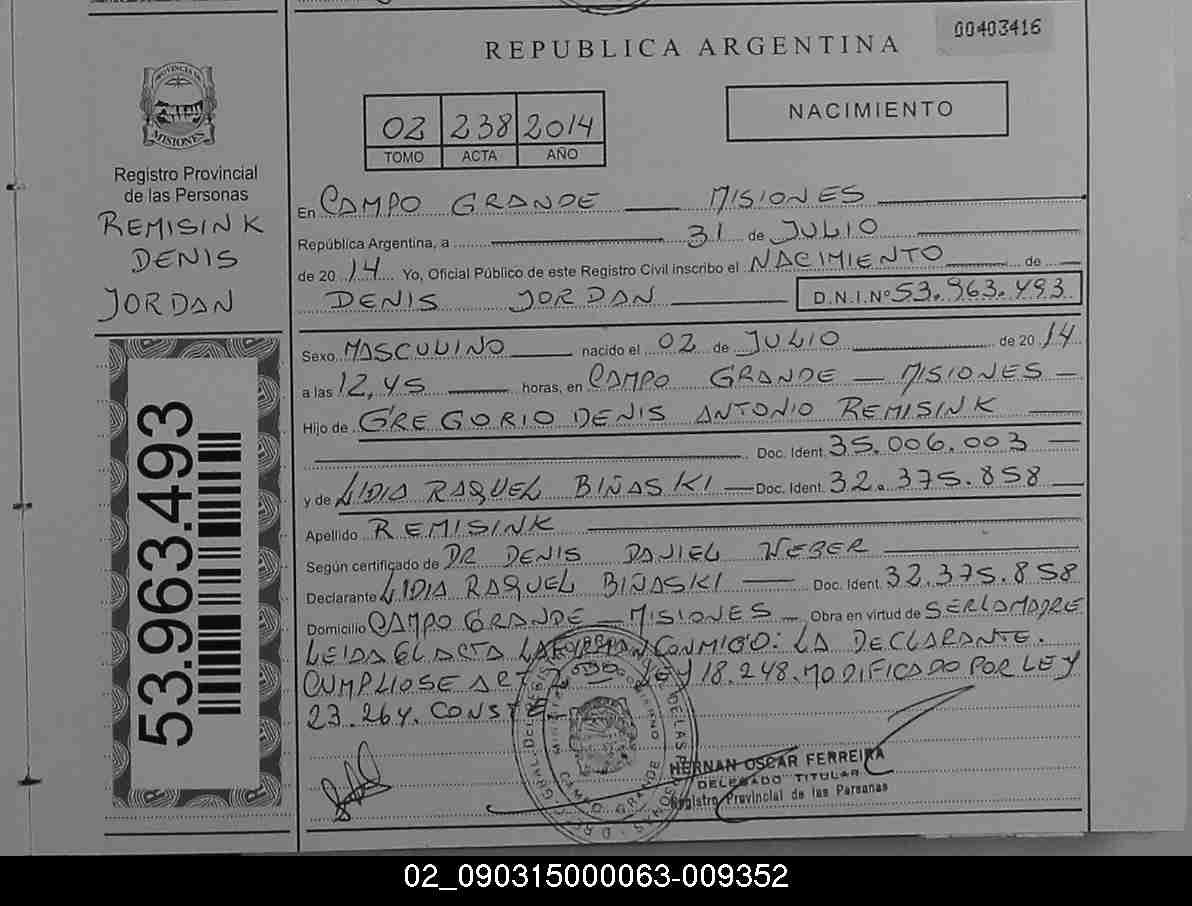 REPUBLICA ARGENTINA
00403416
PROVINCIA DE
MISIONES
Registro Provincial
de las Personas
REMISINK
DENIS
JORDAN
53.963.493
02 238 2014
TOMO ACTA AÑO
NACIMIENTO
En CAMPO GRANDE MISIONES
República Argentina, a 31 de JULIO
de 2014 Yo, Oficial Público de este Registro Civil inscribo el NACIMIENTO de
DENIS JORDAN D.N.I.Nº 53.963.493
Sexo MASCULINO nacido el 02 de JULIO de 2014
a las 12,45 horas, en CAMPO GRANDE — MISIONES —
Hijo de GREGORIO DENIS ANTONIO REMISINK
Doc. Ident. 35.006.003
y de LIDIA RAQUEL BIÑASKI — Doc. Ident. 32.375.858
Apellido REMISINK
Según certificado de DR DENIS DANIEL WEBER
Declarante LIDIA RAQUEL BIÑASKI — Doc. Ident. 32.375.858
Domicilio CAMPO GRANDE — MISIONES — Obra en virtud de SER LA MADRE
LEIDA EL ACTA LA FIRMAN CONMIGO: LA DECLARANTE.
CUMPLIOSE ART LEY 18.248. MODIFICADO POR LEY
23.264. CONSTE
HERNAN OSCAR FERREIRA
DELEGADO TITULAR
Registro Provincial de las Personas
CAMPO GRANDE
02_090315000063-009352